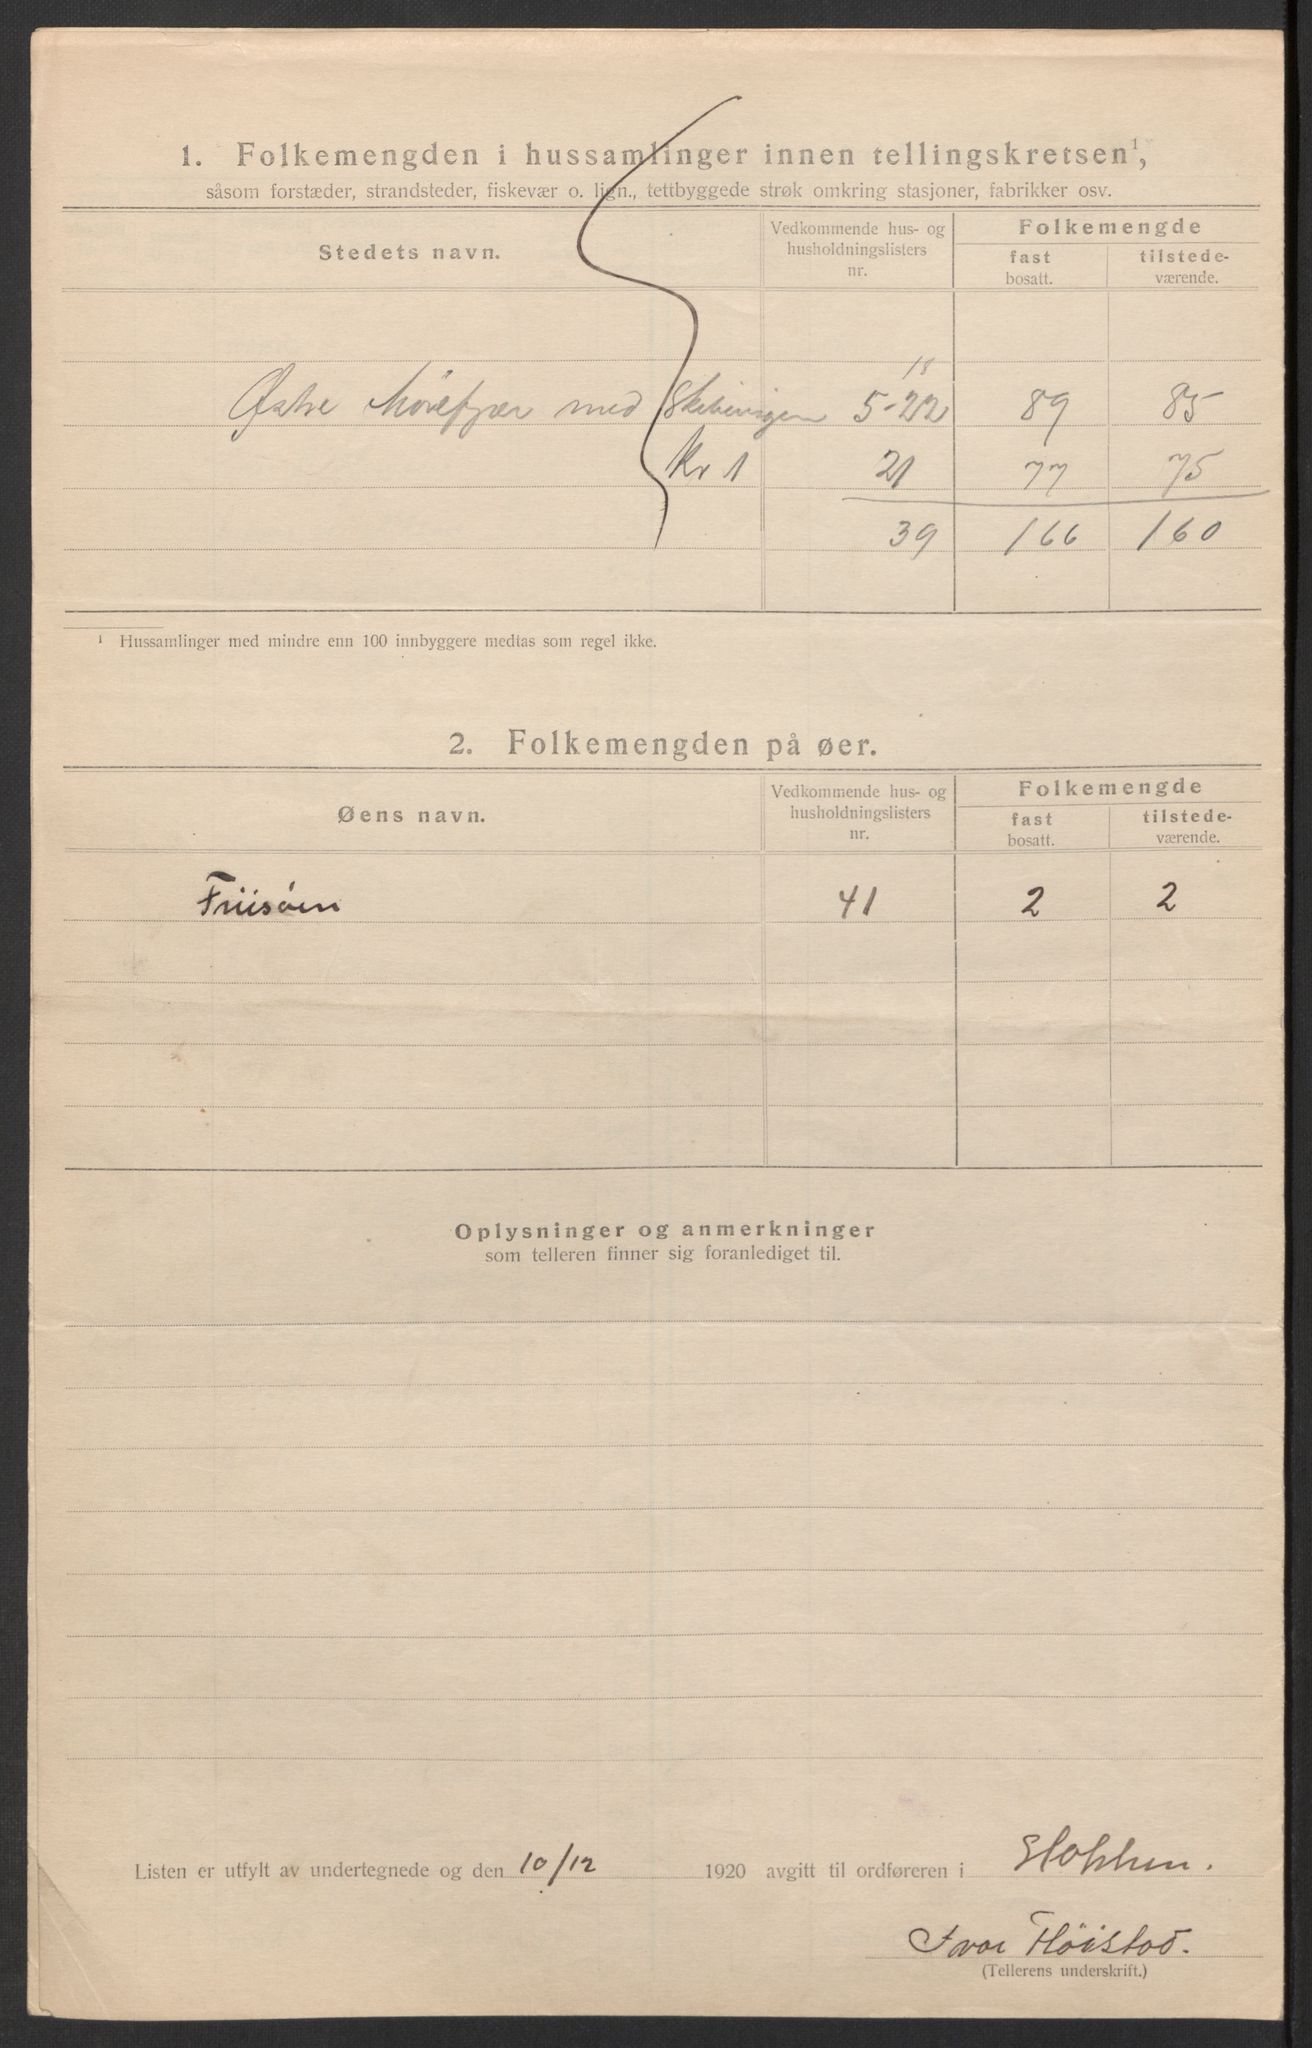 1. Folkemengden i hussamlinger innen tellingskretsen¹,
såsom forstæder, strandsteder, fiskevær o. lign., tettbyggede strøk omkring stasjoner, fabrikker osv.
Stedets navn.
Vedkommende hus- og husholdningslisters nr.
Folkemengde
fast bosatt.
tilstede-værende.
18
Østre med 5-22 89 85
Kr 1 21 77 75
39 166 160
¹ Hussamlinger med mindre enn 100 innbyggere medtas som regel ikke.
2. Folkemengden på øer.
Øens navn.
Vedkommende hus- og husholdningslisters nr.
Folkemengde
fast bosatt.
tilstede-værende.
Friisöen 41 2 2
Oplysninger og anmerkninger
som telleren finner sig foranlediget til.
Listen er utfylt av undertegnede og den 10/12 1920 avgitt til ordføreren i Stokken.
Ivar Höistad.
(Tellerens underskrift.)